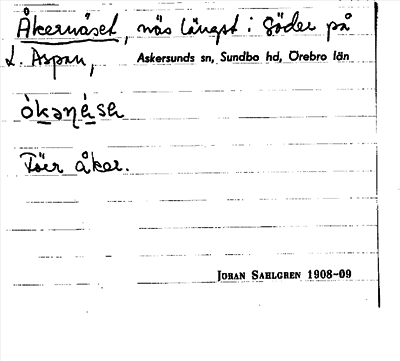 Åkernäset, näs längst i Söder på
L. Aspan, Askersunds sn, Sundbo hd, Örebro län
åker.
JOHAN SAHLGREN 1908-09